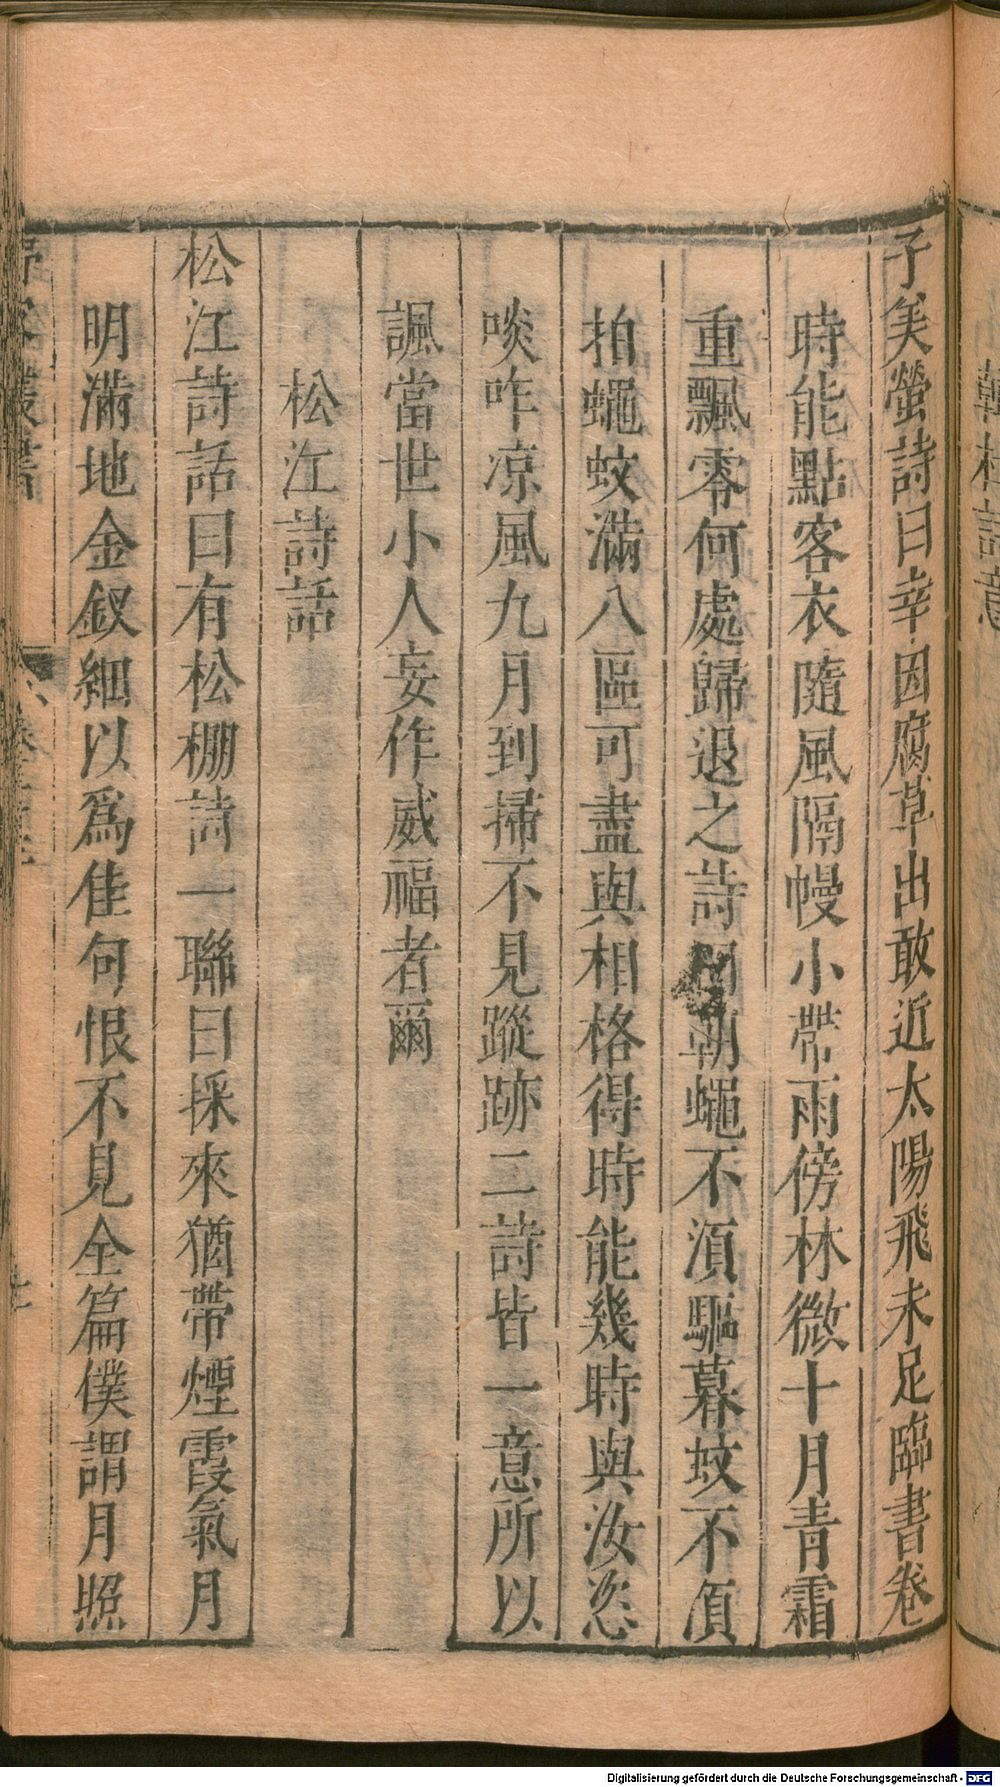 子美螢詩曰幸因腐草出敢近太陽飛未足臨書卷
時能點客衣隨風隔幔小帶雨傍林微十月青霜
重飄零何處歸退之詩朝蠅不須驅暮蚊不須
拍蠅蚊滿八區可盡與相格得時能幾時與汝恣
啖咋凉風九月到掃不見蹤跡二詩皆一意所以
諷當世小人妄作威福者爾
松江詩話
松江詩話曰有松棚詩一聯曰採來猶帶煙霞氣月
明滿地金釵細以爲佳句恨不見全篇僕謂月照
Digitalisierung gefördert durch die Deutsche Forschungsgemeinschaft - DFG